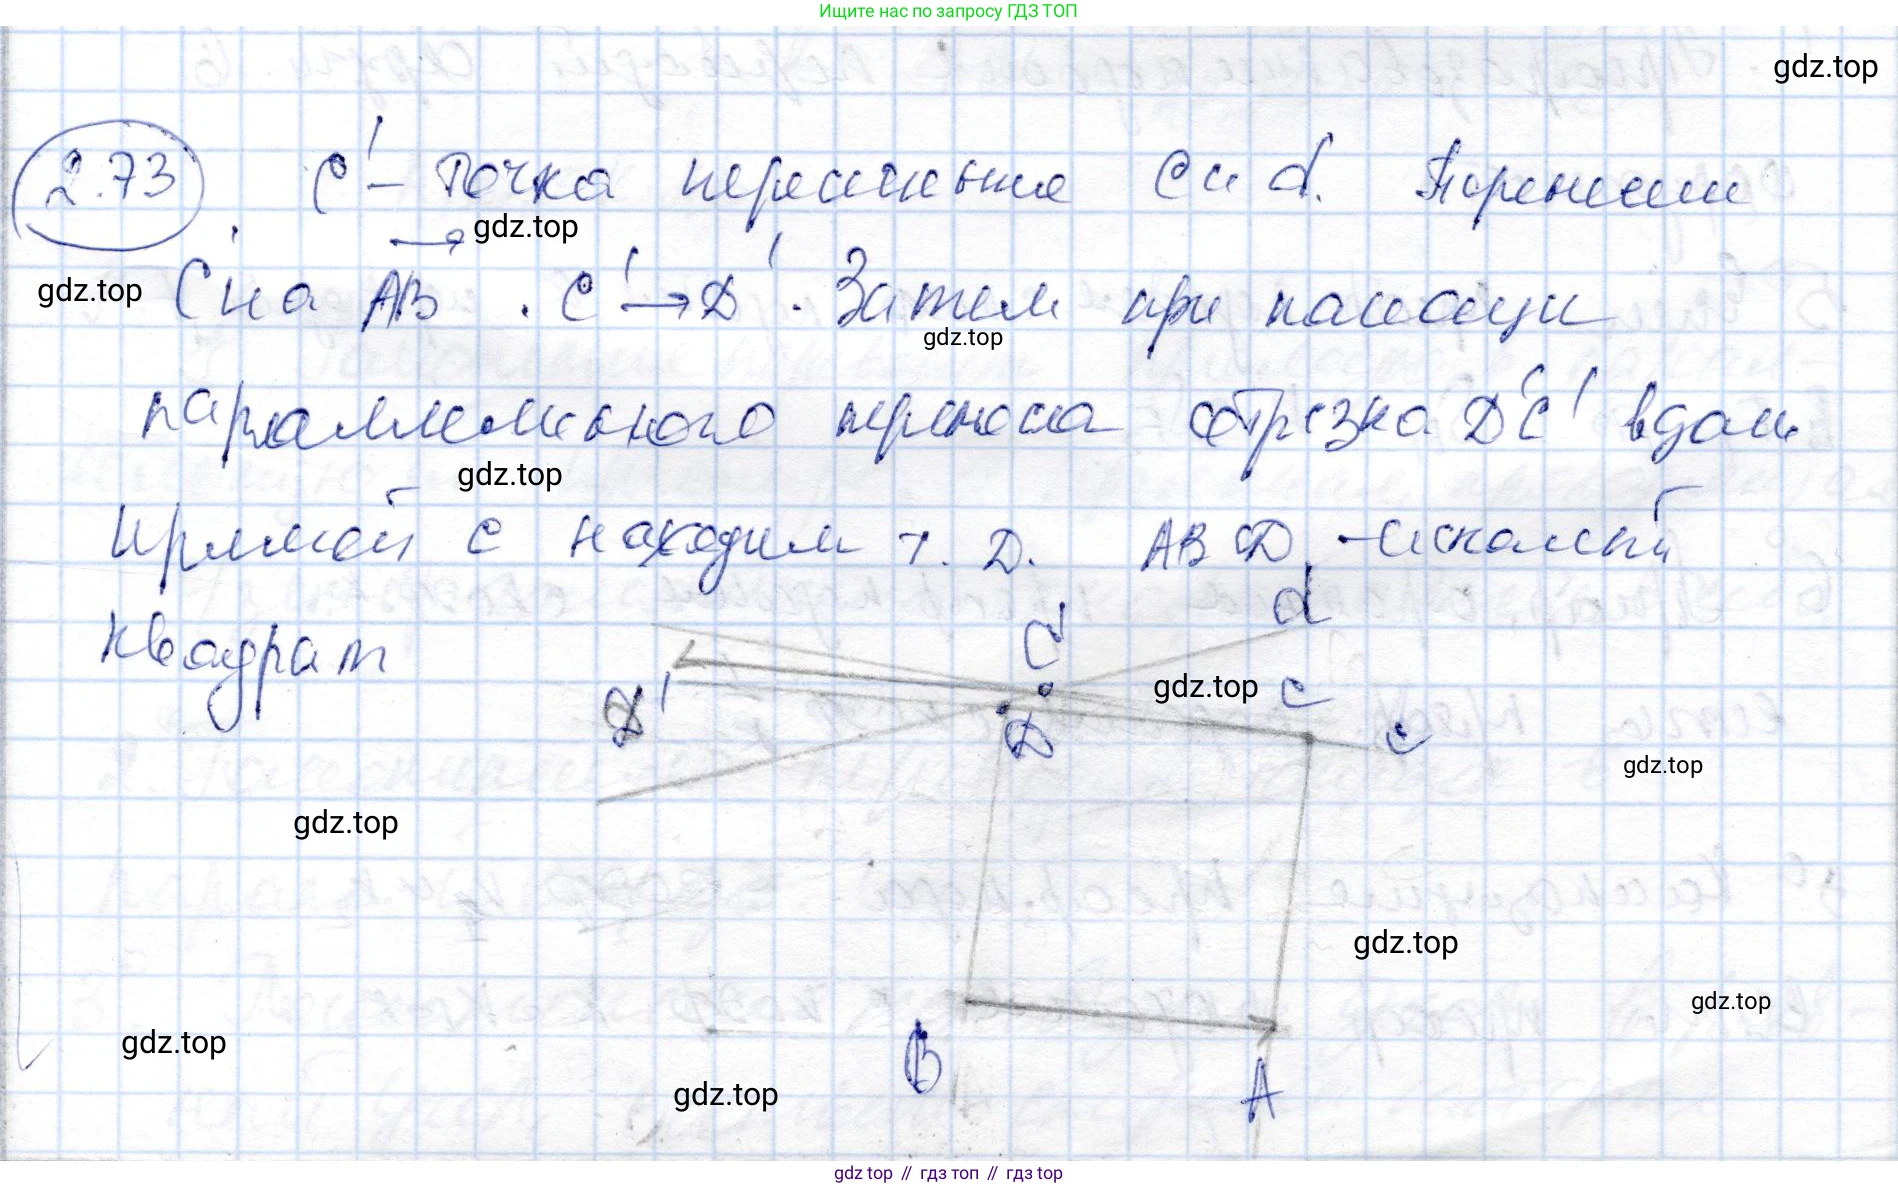 Ищите нас по запросу ГДЗ ТОП
gdz.top
2.73. C' – точка пересечения c и d. Перенесем
gdz.top
gdz.top
C' на AB. C' → D'. Затем при помощи
gdz.top
параллельного переноса отрезка D'C' вдоль
gdz.top
прямой c находим т. D. ABCD – искомый
квадрат
d
C'
gdz.top
c
D'
D
C
gdz.top
gdz.top
gdz.top
gdz.top
gdz.top
B
A
gdz.top
gdz.top // гдз топ // гдз top